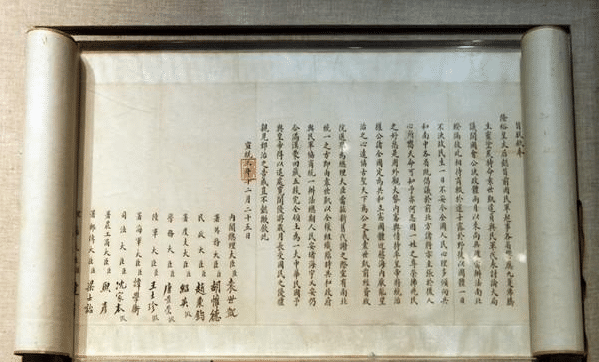 奉旨朕欽奉
隆裕皇太后懿旨前因民軍起事各省響應九夏沸騰
生靈塗炭特命袁世凱遣員與民軍代表討論大局
議開國會公決政體兩月以來尚無確當辦法南北
暌隔彼此相持商輟於途士露於野徒以國體一日
不決故民生一日不安今全國人民心理多傾向共
和南中各省既倡議於前北方諸將亦主張於後人
心所嚮天命可知予亦何忍因一姓之尊榮拂兆民
之好惡是用外觀大勢內審輿情特率皇帝將統治
權公諸全國定為共和立憲國體近慰海內厭亂望
治之心遠協古聖天下為公之義袁世凱前經資政
院選舉為總理大臣當茲新舊代謝之際宜有南北
統一之方即由袁世凱以全權組織臨時共和政府
與民軍協商統一辦法總期人民安堵海宇乂安仍
合滿漢蒙回藏五族完全領土為一大中華民國予
與皇帝得以退處寬閒優游歲月長受國民之優禮
親見郅治之告成豈不懿歟欽此
宣統三年十二月二十五日
內閣總理大臣臣袁世凱
署外務大臣臣胡惟德
民政大臣臣趙秉鈞
署度支大臣臣紹英假
學務大臣臣唐景崇假
陸軍大臣臣王士珍假
署海軍大臣臣譚學衡
司法大臣臣沈家本假
署農工商大臣臣熙彥
署郵傳大臣臣梁士詒